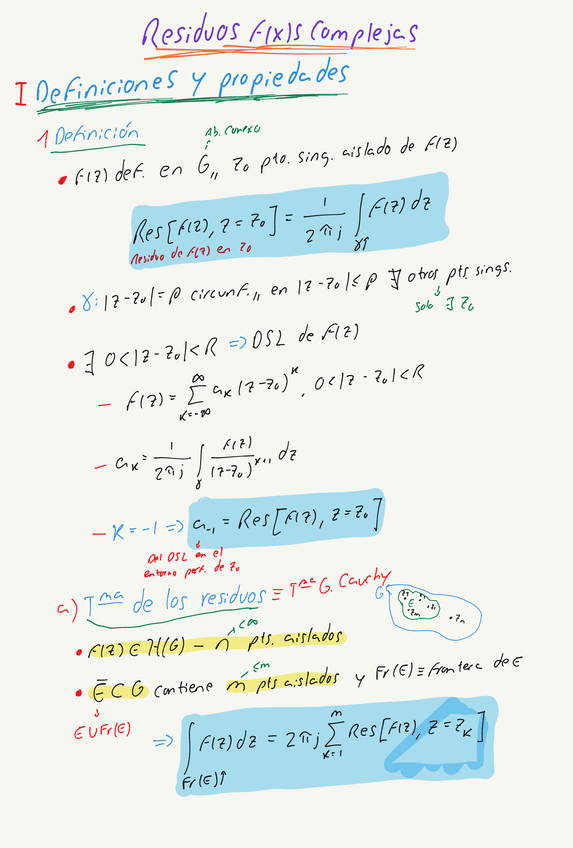 Residuos F(x)s Complejas
I Definiciones y propiedades
1 Definición
Ab. Conexo
• F(z) def. en G,, z₀ pto. sing. aislado de F(z)
Res[F(z), z = z₀] = 1/(2πj) ∫_γ↑ F(z) dz
Residuo de F(z) en z₀
• γ: |z-z₀| = ρ circunf.,, en |z-z₀| ≤ ρ ∄ otros pts. sings.
Solo ∃ z₀
• ∃ 0<|z-z₀|<R => DSL de F(z)
– F(z) = ∑_{k=-∞}^{∞} aₖ (z-z₀)^k, 0<|z-z₀|<R
– aₖ = 1/(2πj) ∫_γ F(z)/(z-z₀)^{k+1} dz
– k = -1 => a₋₁ = Res[F(z), z = z₀]
Del DSL en el
entorno perf. de z₀
a) Tᵐᵃ de los residuos ≡ Tᵐᵃ G. Cauchy
G E z₁ zₘ zₙ
<∞
• F(z) ∈ H(G) – n pts. aislados
≤m
• Ē ⊂ G contiene m pts aislados y Fr(E) ≡ frontera de E
E ∪ Fr(E)
=> ∫_{Fr(E)↑} F(z) dz = 2πj ∑_{k=1}^{m} Res[F(z), z = zₖ]